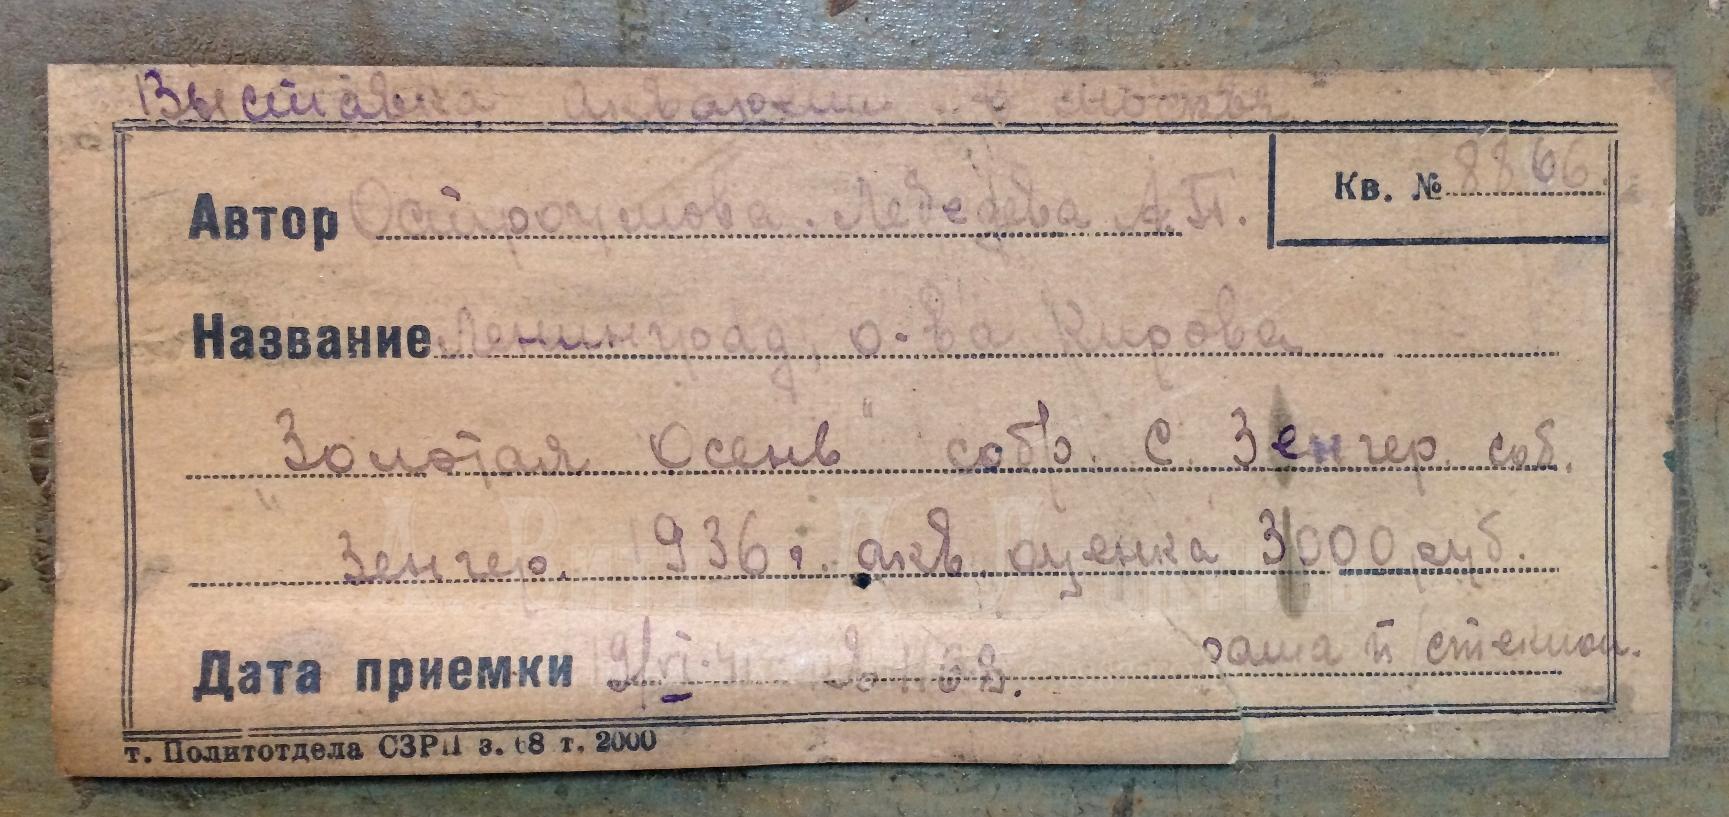 Выставка акварели
Кв. № 8866.
Автор Остроумова-Лебедева А.П.
Название Ленинград, о-ва Кирова
"Золотая Осень" собр. С. Зенгер. соб.
Зенгер. 1936 г. акв. оценка 3000 руб.
рама и стеклом.
Дата приемки 19/VI-41
т. Политотдела СЗРП з. 68 т. 2000